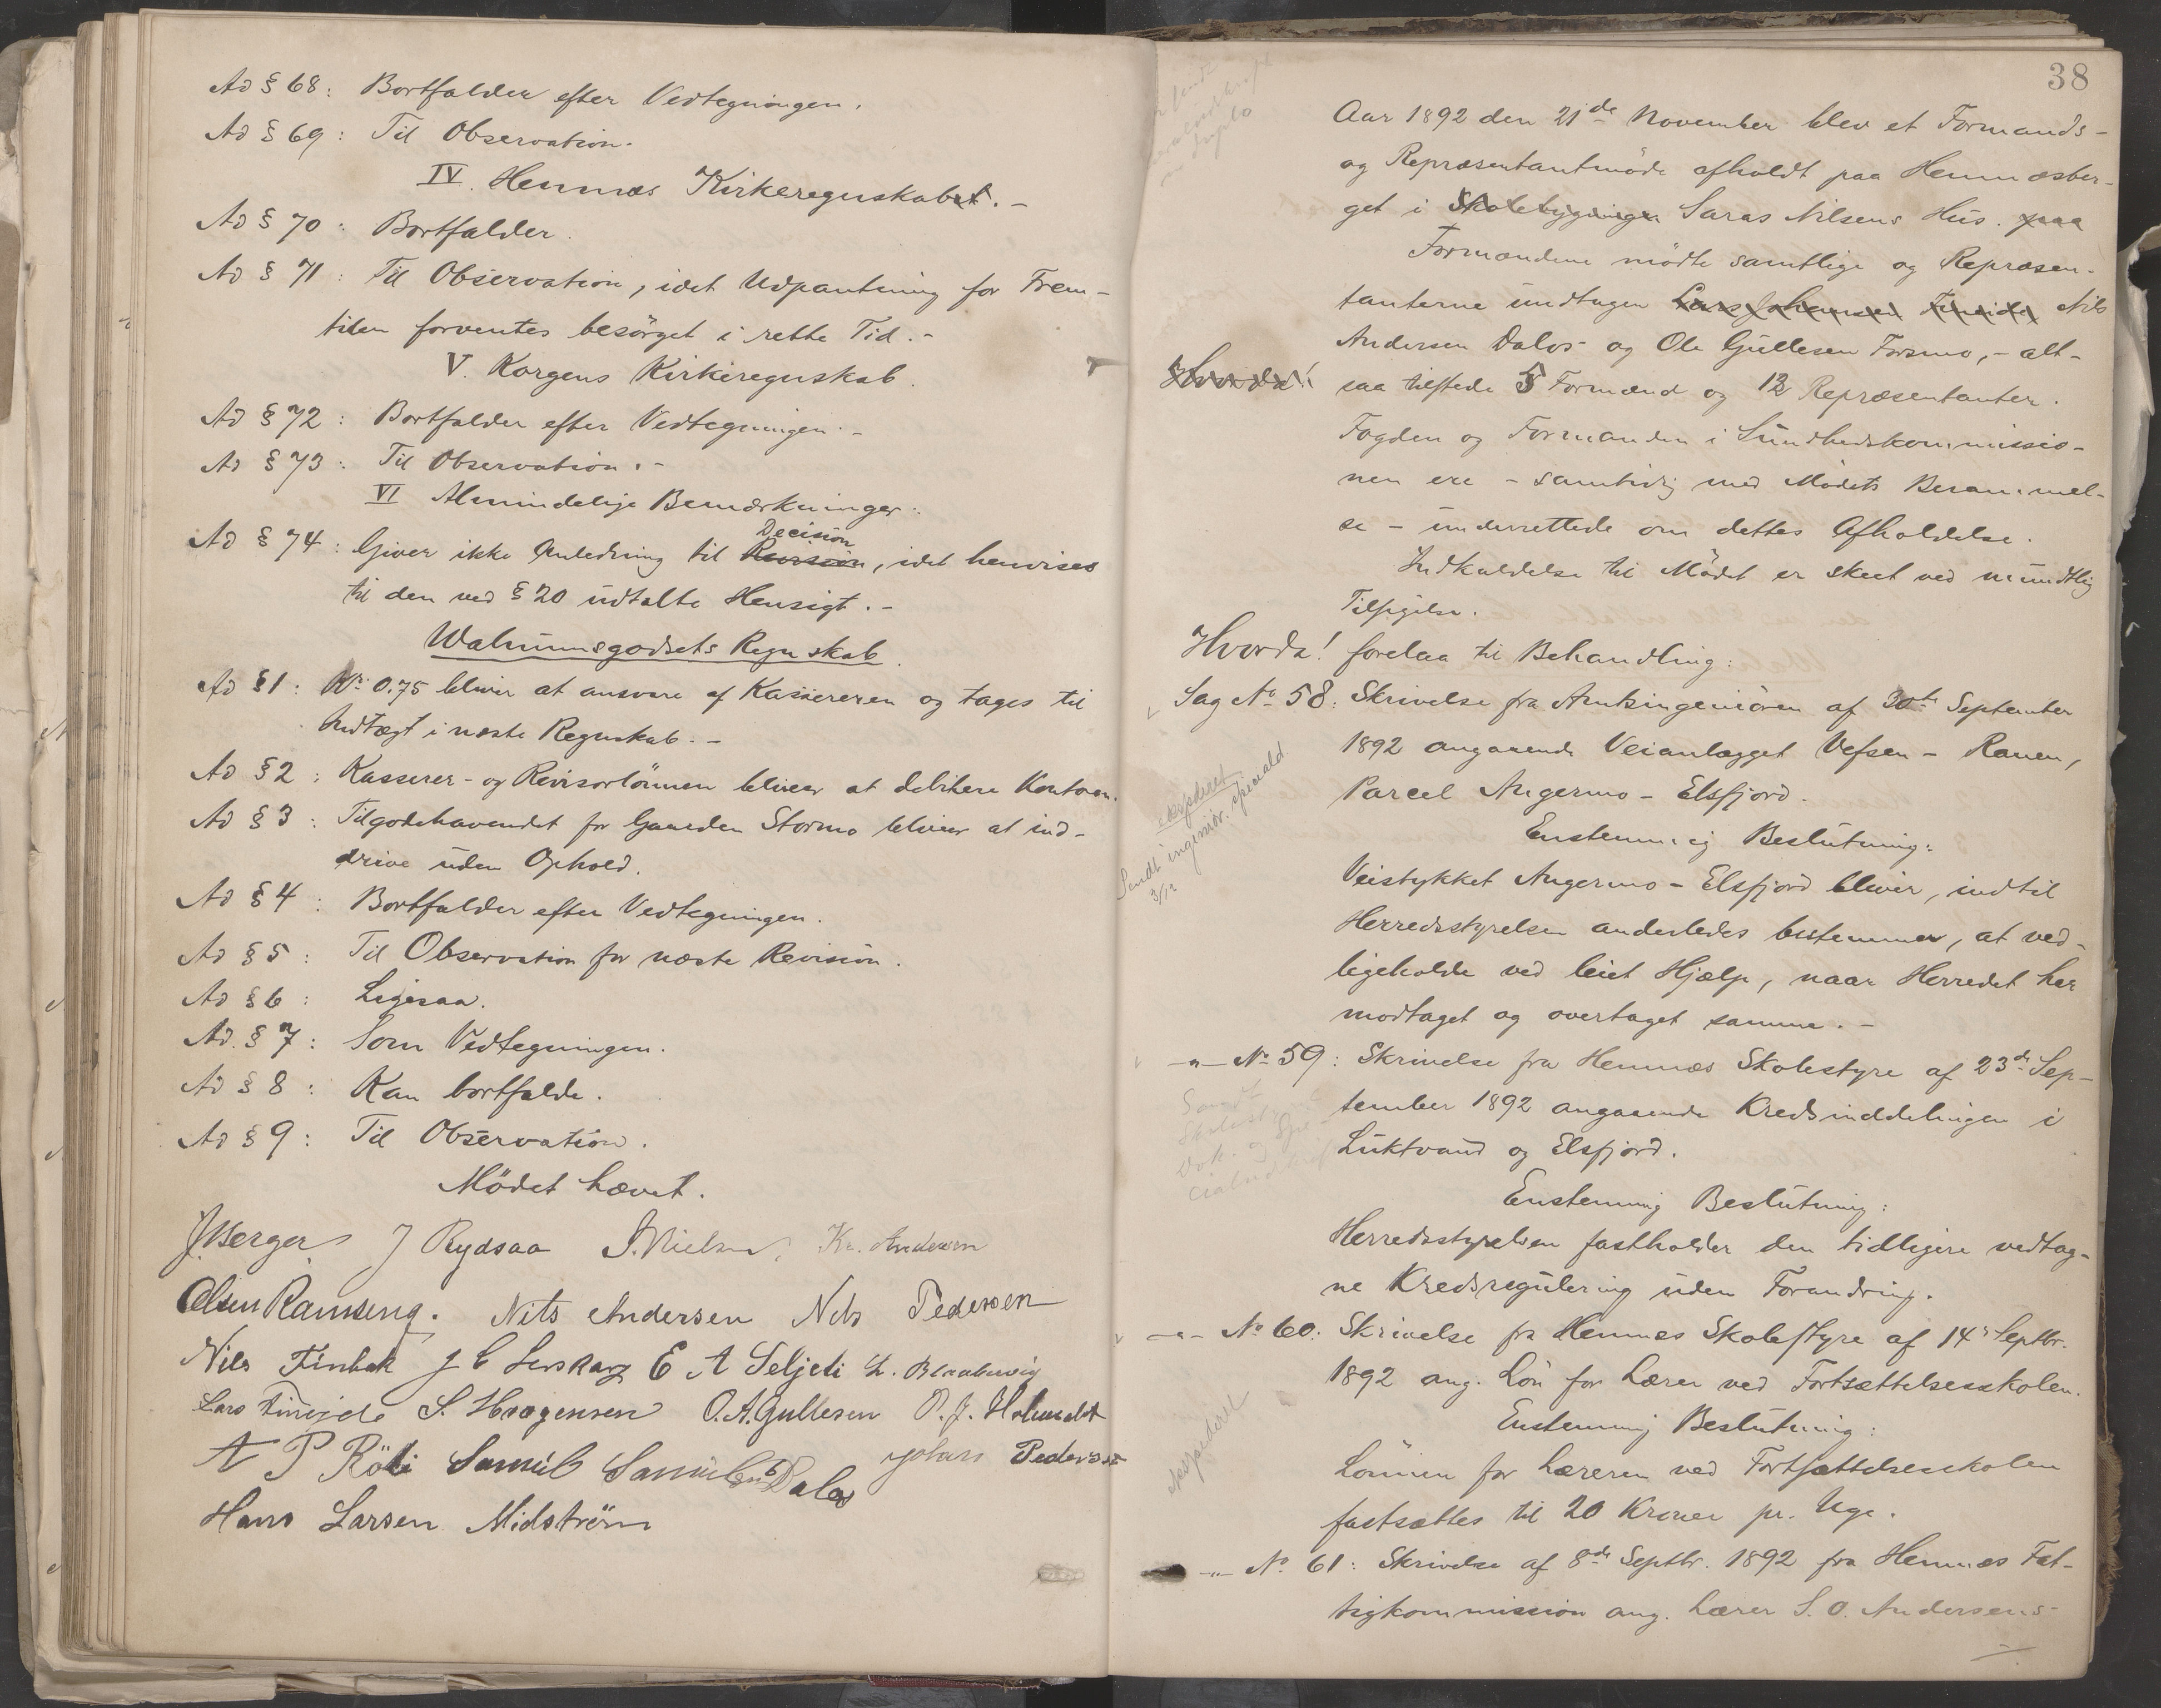 Ad § 68: Bortfalder efter Vedtegningen.
Ad § 69: Til Observation.
IV. Hemnæs Kirkeregnskabet. -
Ad § 70: Bortfalder.
Ad § 71: Til Observation, idet Udpantning for Frem-
tiden forventes besörget i rette Tid. -
V. Korgens Kirkeregnskab.
Ad § 72: Bortfalder efter Vedtegningen. -
Ad § 73: Til Observation. -
VI Almindelige Bemærkninger:
Decision
Ad § 74: Giver ikke Anledning til Revision, idet henvises
til den ved § 20 udtalte Hensigt. -
Walnumsgodsets Regnskab.
Ad § 1: Kr. 0.75 bliver at ansvare af Kassereren og tages til
Indtægt i næste Regnskab. -
Ad § 2: Kasserer- og Revisorlönnen bliver at debitere Kontoen.
Ad § 3: Tilgodehavendet for Gaarden Stormo bliver at ind-
drive uden Ophold.
Ad § 4: Bortfalder efter Vedtegningen.
Ad § 5: Til Observation for næste Revision.
Ad § 6: Ligesaa.
Ad § 7: Som Vedtegningen.
Ad § 8: Kan bortfalde.
Ad § 9: Til Observation.
Mödet hævet.
J. Berger J Rydsaa S. Nielsen Kr. Andersen
Olsen Ranseng. Nils Andersen Nils Pedersen
Nils Finbak J C Leerskarz E A Seljeli
Lars Fineide S. Haagensen O. A. Gullesen P. J. Holmslet
A P Röli Samuel Samuelsen Dalos Johans Pedersen
Hans Larsen Midström
38
Aar 1892 den 21de November blev et Formands-
og Repræsentantmöde afholdt paa Hemnæsber-
get i Skolebygningen Saras Nilsens Hus. paa
Formændene mödte samtlige og Repræsen-
tanterne undtagen Lars Johansen Fineide, Nils
Andersen Dalos og Ole Gullesen Forsmo, - alt-
Hvorda!
saa tilstede 5 Formænd og 12 Repræsentanter.
Fogden og Formanden i Sundhedskommissio-
nen ere - samtidig med Mödets Berammel-
se - underrettede om dettes Afholdelse.
Indkaldelse til Mödet er skeet ved mundtlig
Tilsigelse.
Hvorda! forelaa til Behandling:
Sag No 58: Skrivelse fra Amtsingeniören af 30te September
1892 angaaende Veianlægget Vefsen - Ranen,
Parcel Angermo - Elsfjord.
ekspederet
Sendt ingeniör. speciald
3/12
Enstemmig Beslutning:
Veistykket Angermo - Elsfjord bliver, indtil
Herredsstyrelsen anderledes bestemmer, at ved-
ligeholde ved leiet Hjælp, naar Herredet har
modtaget og overtaget samme. -
-"- No 59: Skrivelse fra Hemnæs Skolestyre af 23de Sep-
tember 1892 angaaende Kredsinddelingen i
Luktvand og Elsfjord.
Enstemmig Beslutning:
Herredsstyrelsen fastholder den tidligere vedtag-
ne Kredsregulering uden Forandring.
-"- No 60: Skrivelse fra Hemnæs Skolestyre af 14de Septbr.
1892 ang. Lön for Lærer ved Fortsættelsesskolen.
Enstemmig Beslutning:
Lönnen for Læreren ved Fortsættelsesskolen
fastsættes til 20 Kroner pr. Uge.
-"- No 61: Skrivelse af 8de Septbr. 1892 fra Hemnæs Fat-
tigkommission ang. Lærer S. O. Andersens